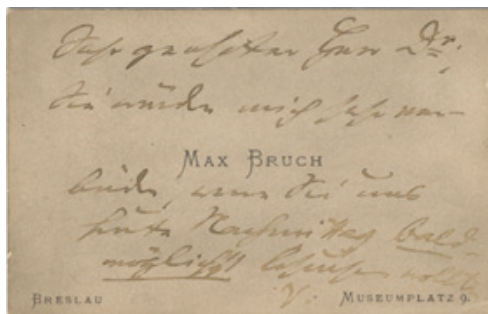 Sehr geehrter Herr Dr,
Sie würden mich sehr ver-
MAX BRUCH
binden, wenn Sie uns
heute Nachmittag bald-
möglichst besuchen wollten
BRESLAU
MUSEUMPLATZ 9.